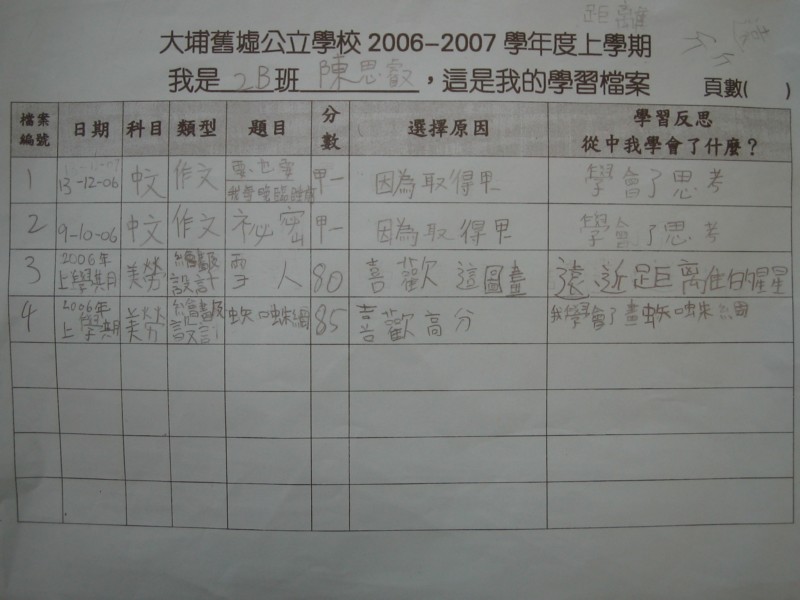 距離
大埔舊墟公立學校 2006-2007 學年度上學期
我是 2B 班 陳思叡 ，這是我的學習檔案 頁數( )
檔案編號 日期 科目 類型 題目 分數 選擇原因 學習反思 從中我學會了什麼？
1 13-12-06 中文 作文 甲一 因為取得甲 學會了思考
2 9-10-06 中文 作文 祕密 甲一 因為取得甲 學會了思考
3 2006年上學期 美勞 繪畫及設計 雪人 80 喜歡這圖畫 遠、近距離的星星
4 2006年上學期 美勞 繪畫及設計 蜘蛛網 85 喜歡高分 我學會了畫蜘蛛網